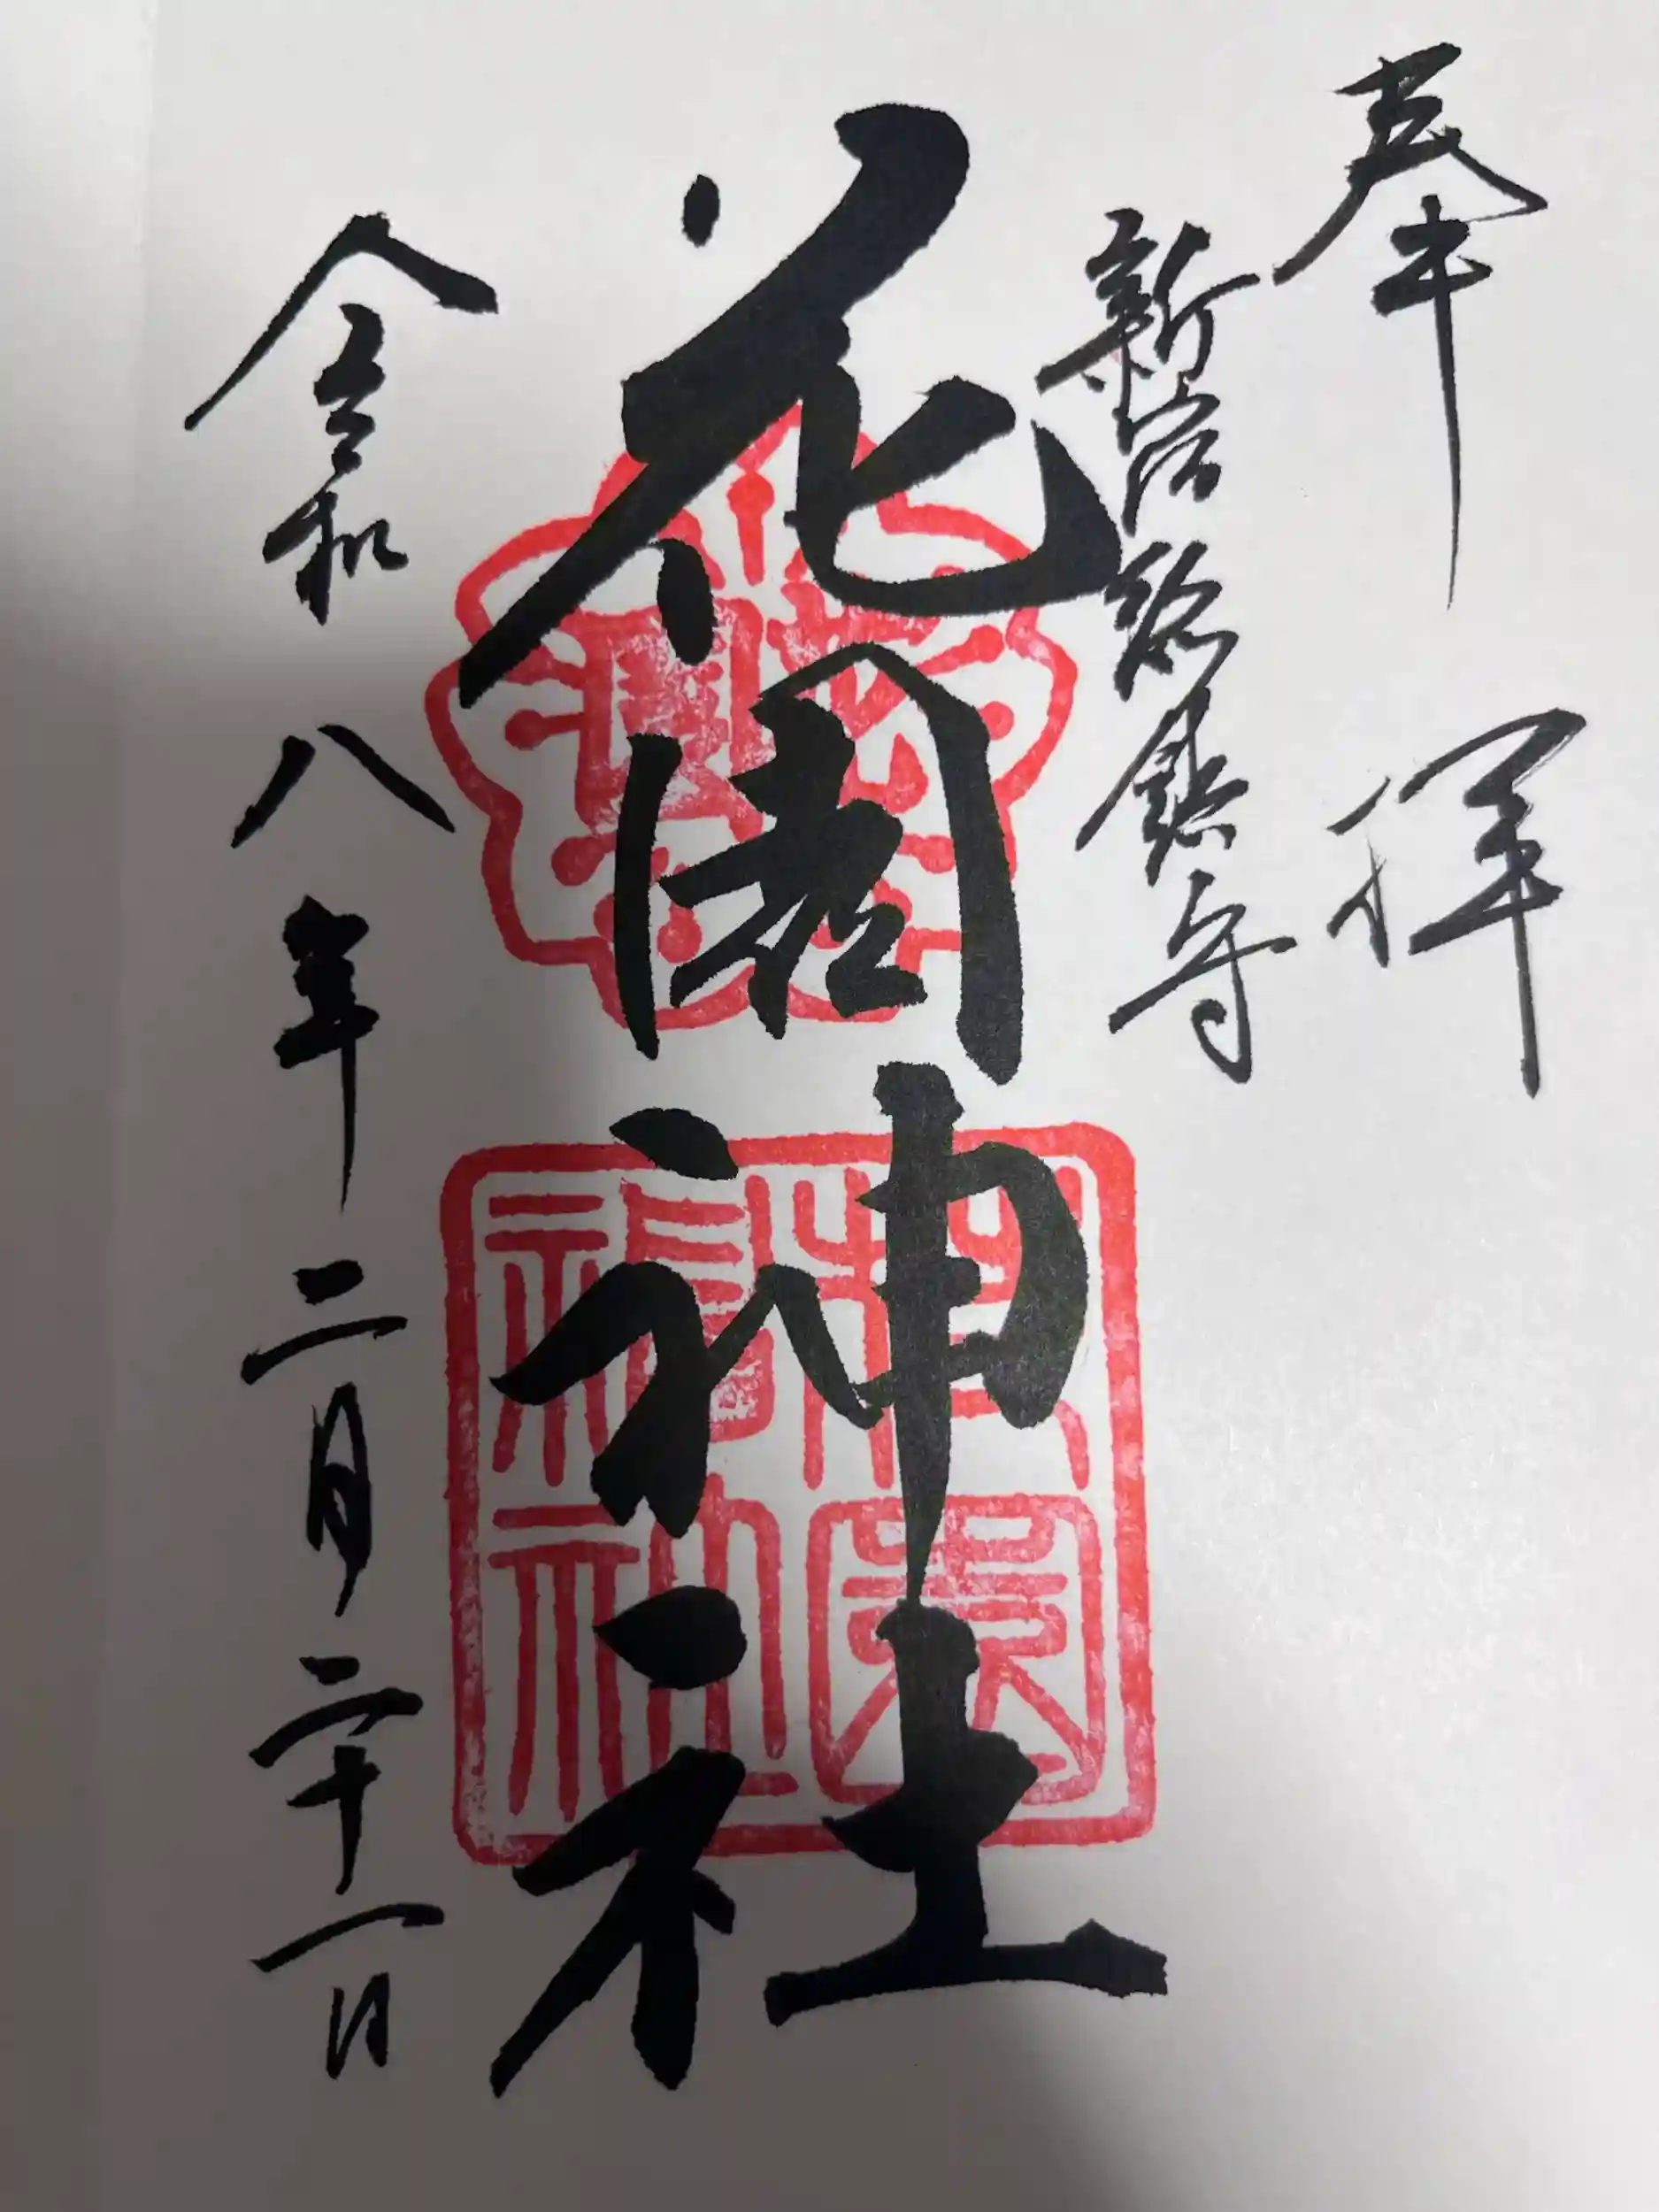 奉拝
新宿総鎮守
花園神社
令和八年二月二十一日
花園
神社